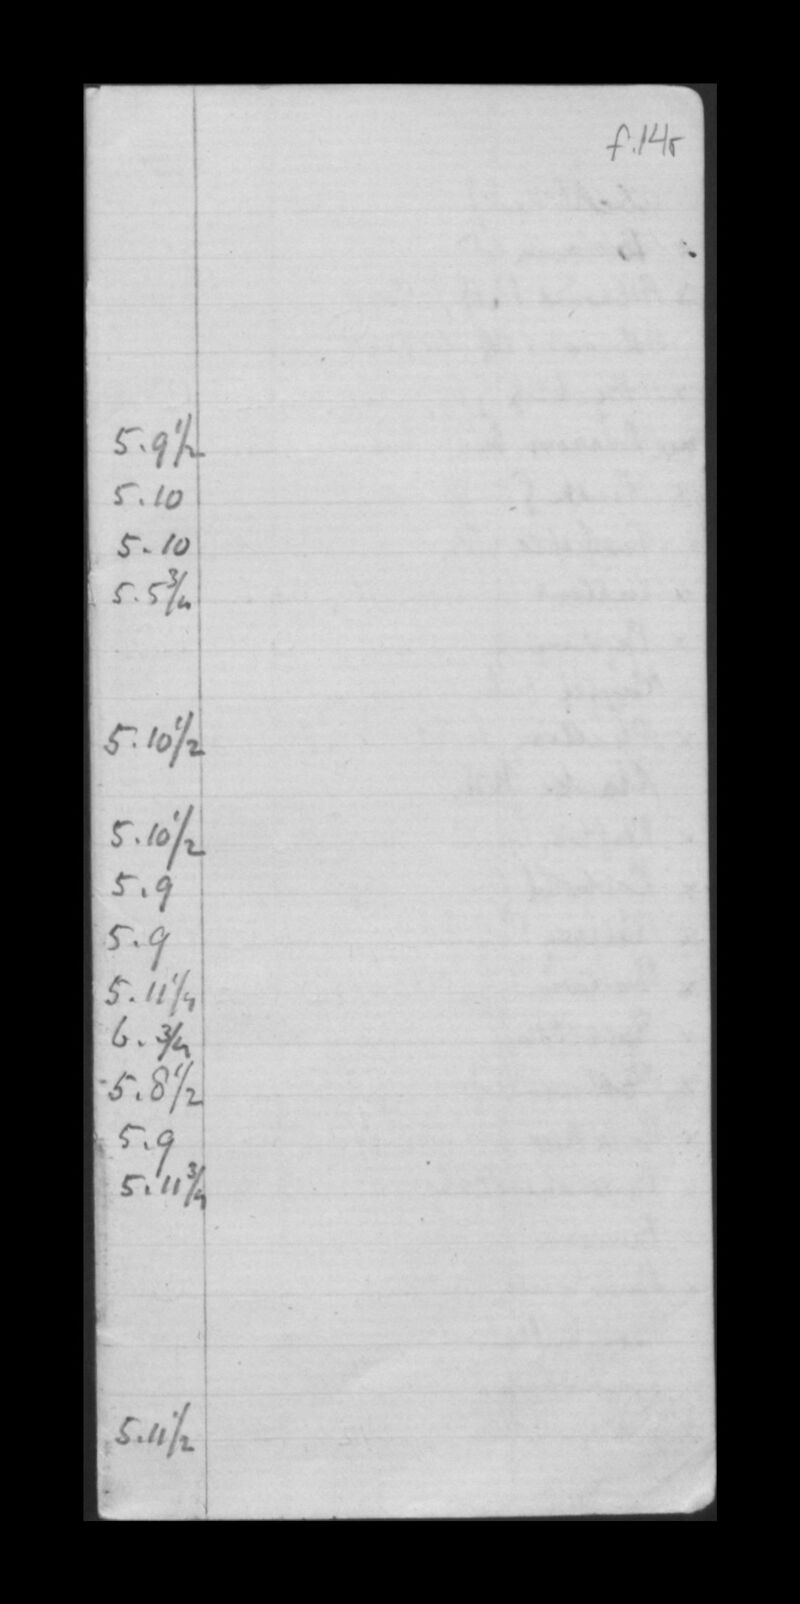 f.14r
5.9 1/2
5.10
5.10
5.5 3/4
5.10 1/2
5.10 1/2
5.9
5.9
5.11 1/4
6. 3/4
5.8 1/2
5.9
5.11 3/4
5.11 1/2